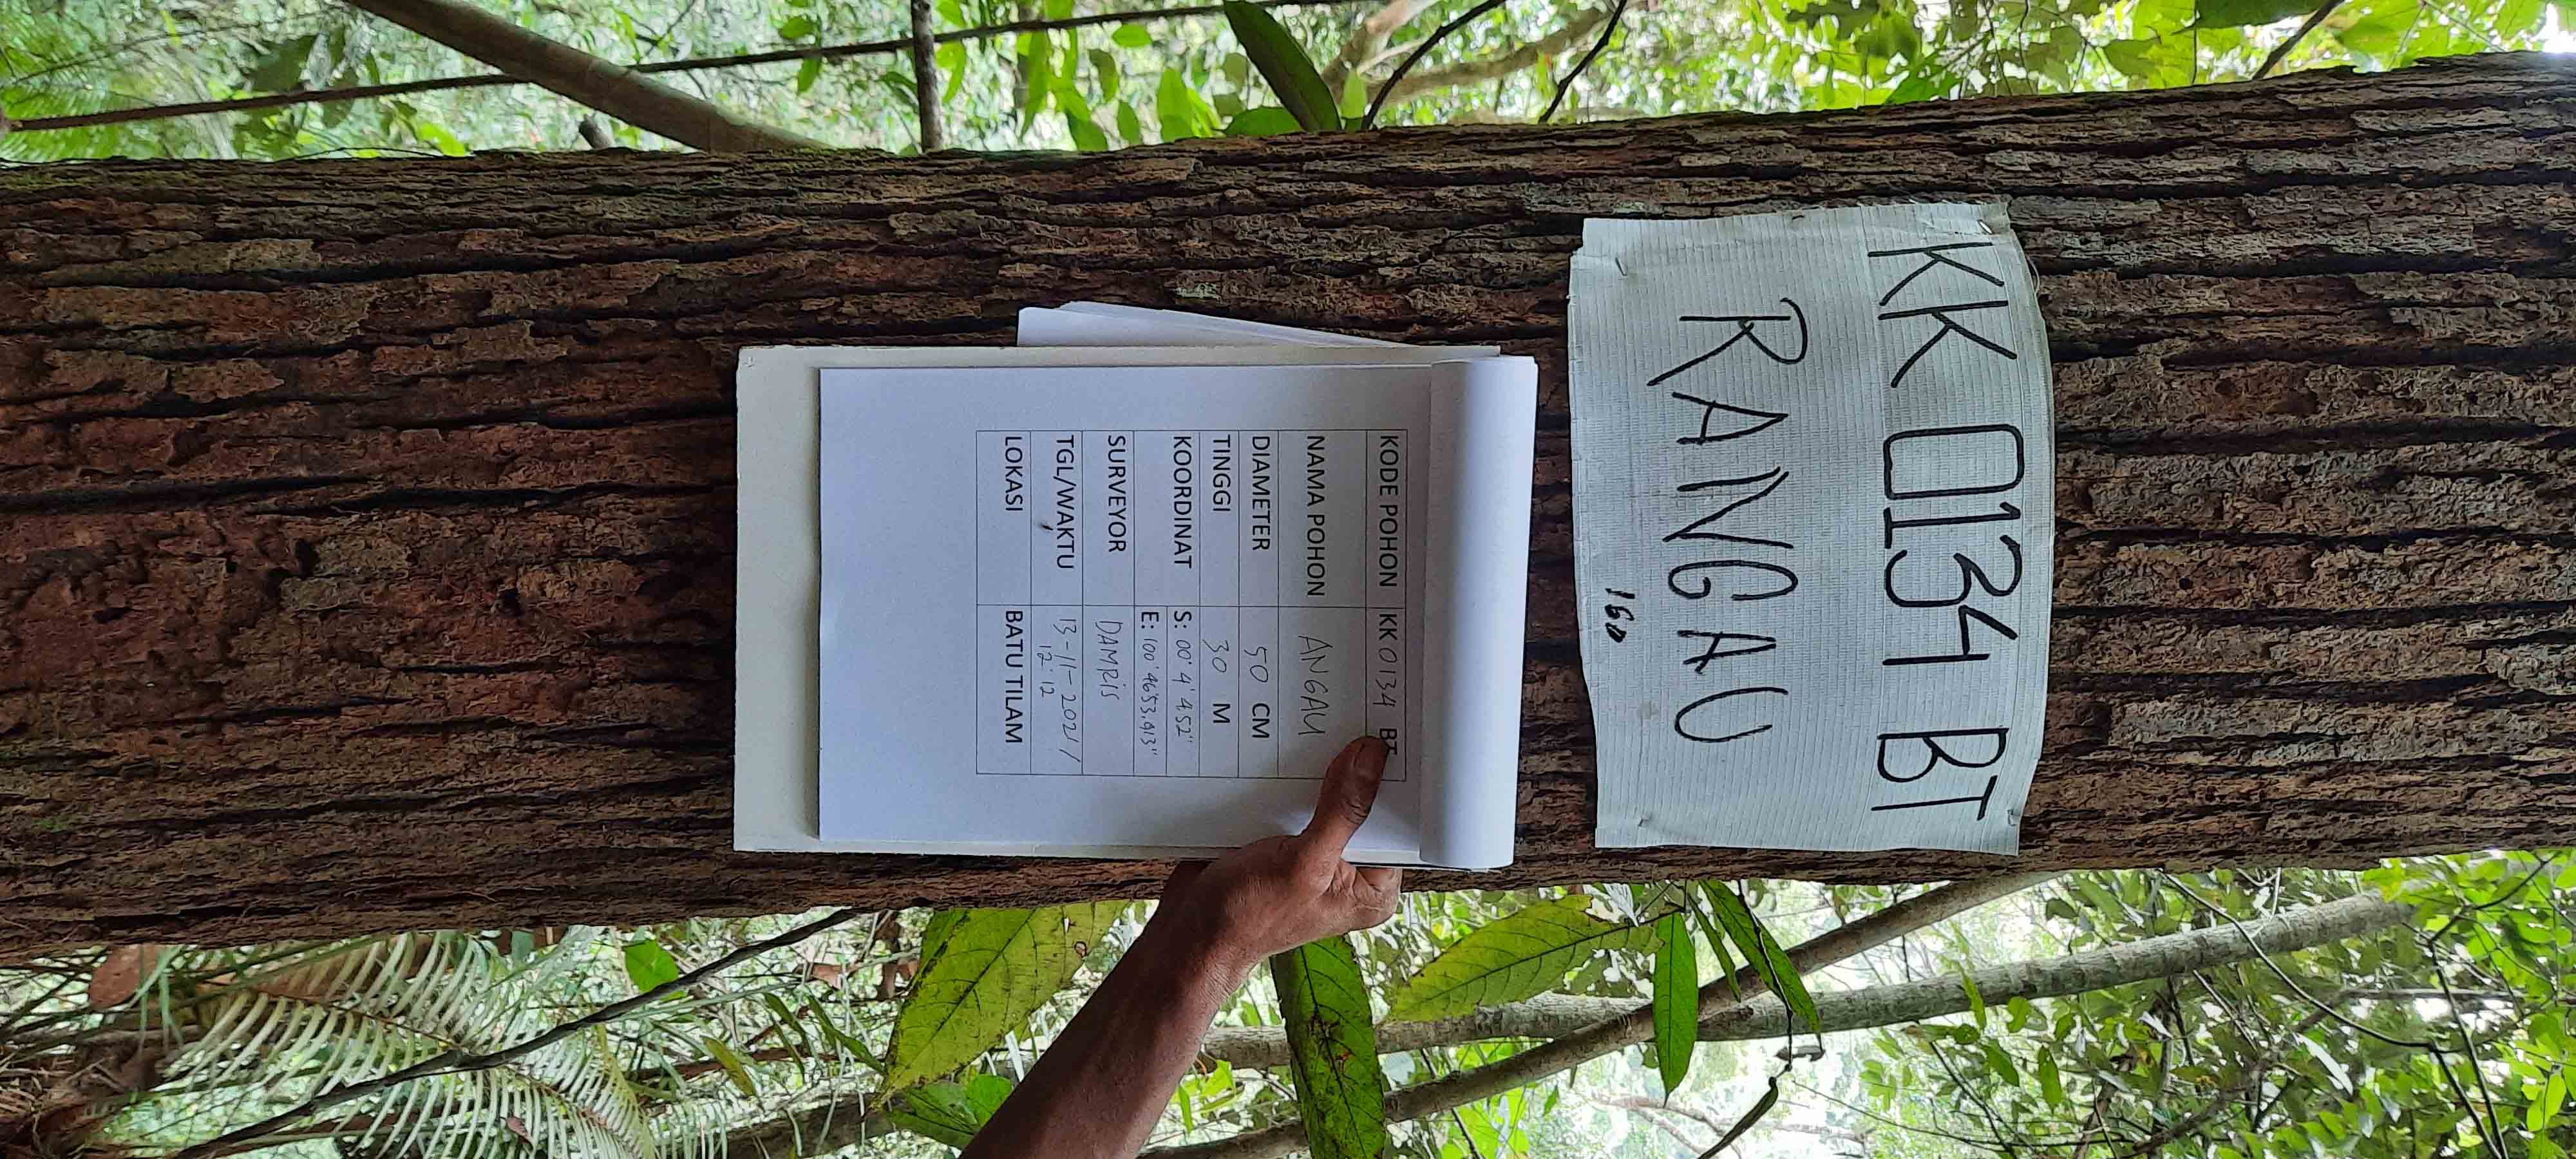 KK 0134 BT
RANGAU
160
KODE POHON KK 0134 BT
NAMA POHON ANGAU
DIAMETER 50 CM
TINGGI 30 M
KOORDINAT S: 00° 4' 4.52"
E: 100° 46' 53.913"
SURVEYOR DAMRIS
TGL/WAKTU 13-11-2021/
12:12
LOKASI BATU TILAM